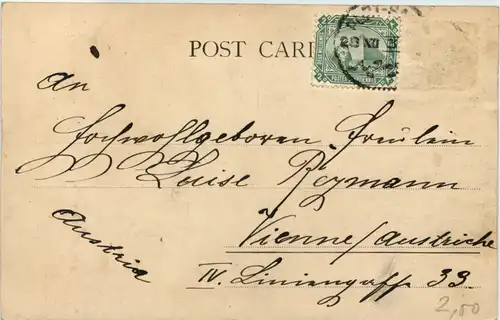 POST CARD
23 XII
An
Hochwohlgeboren Fräulein
Luise
Austria
Vienne/Autriche
IV. Liniengasse 33.
2,50